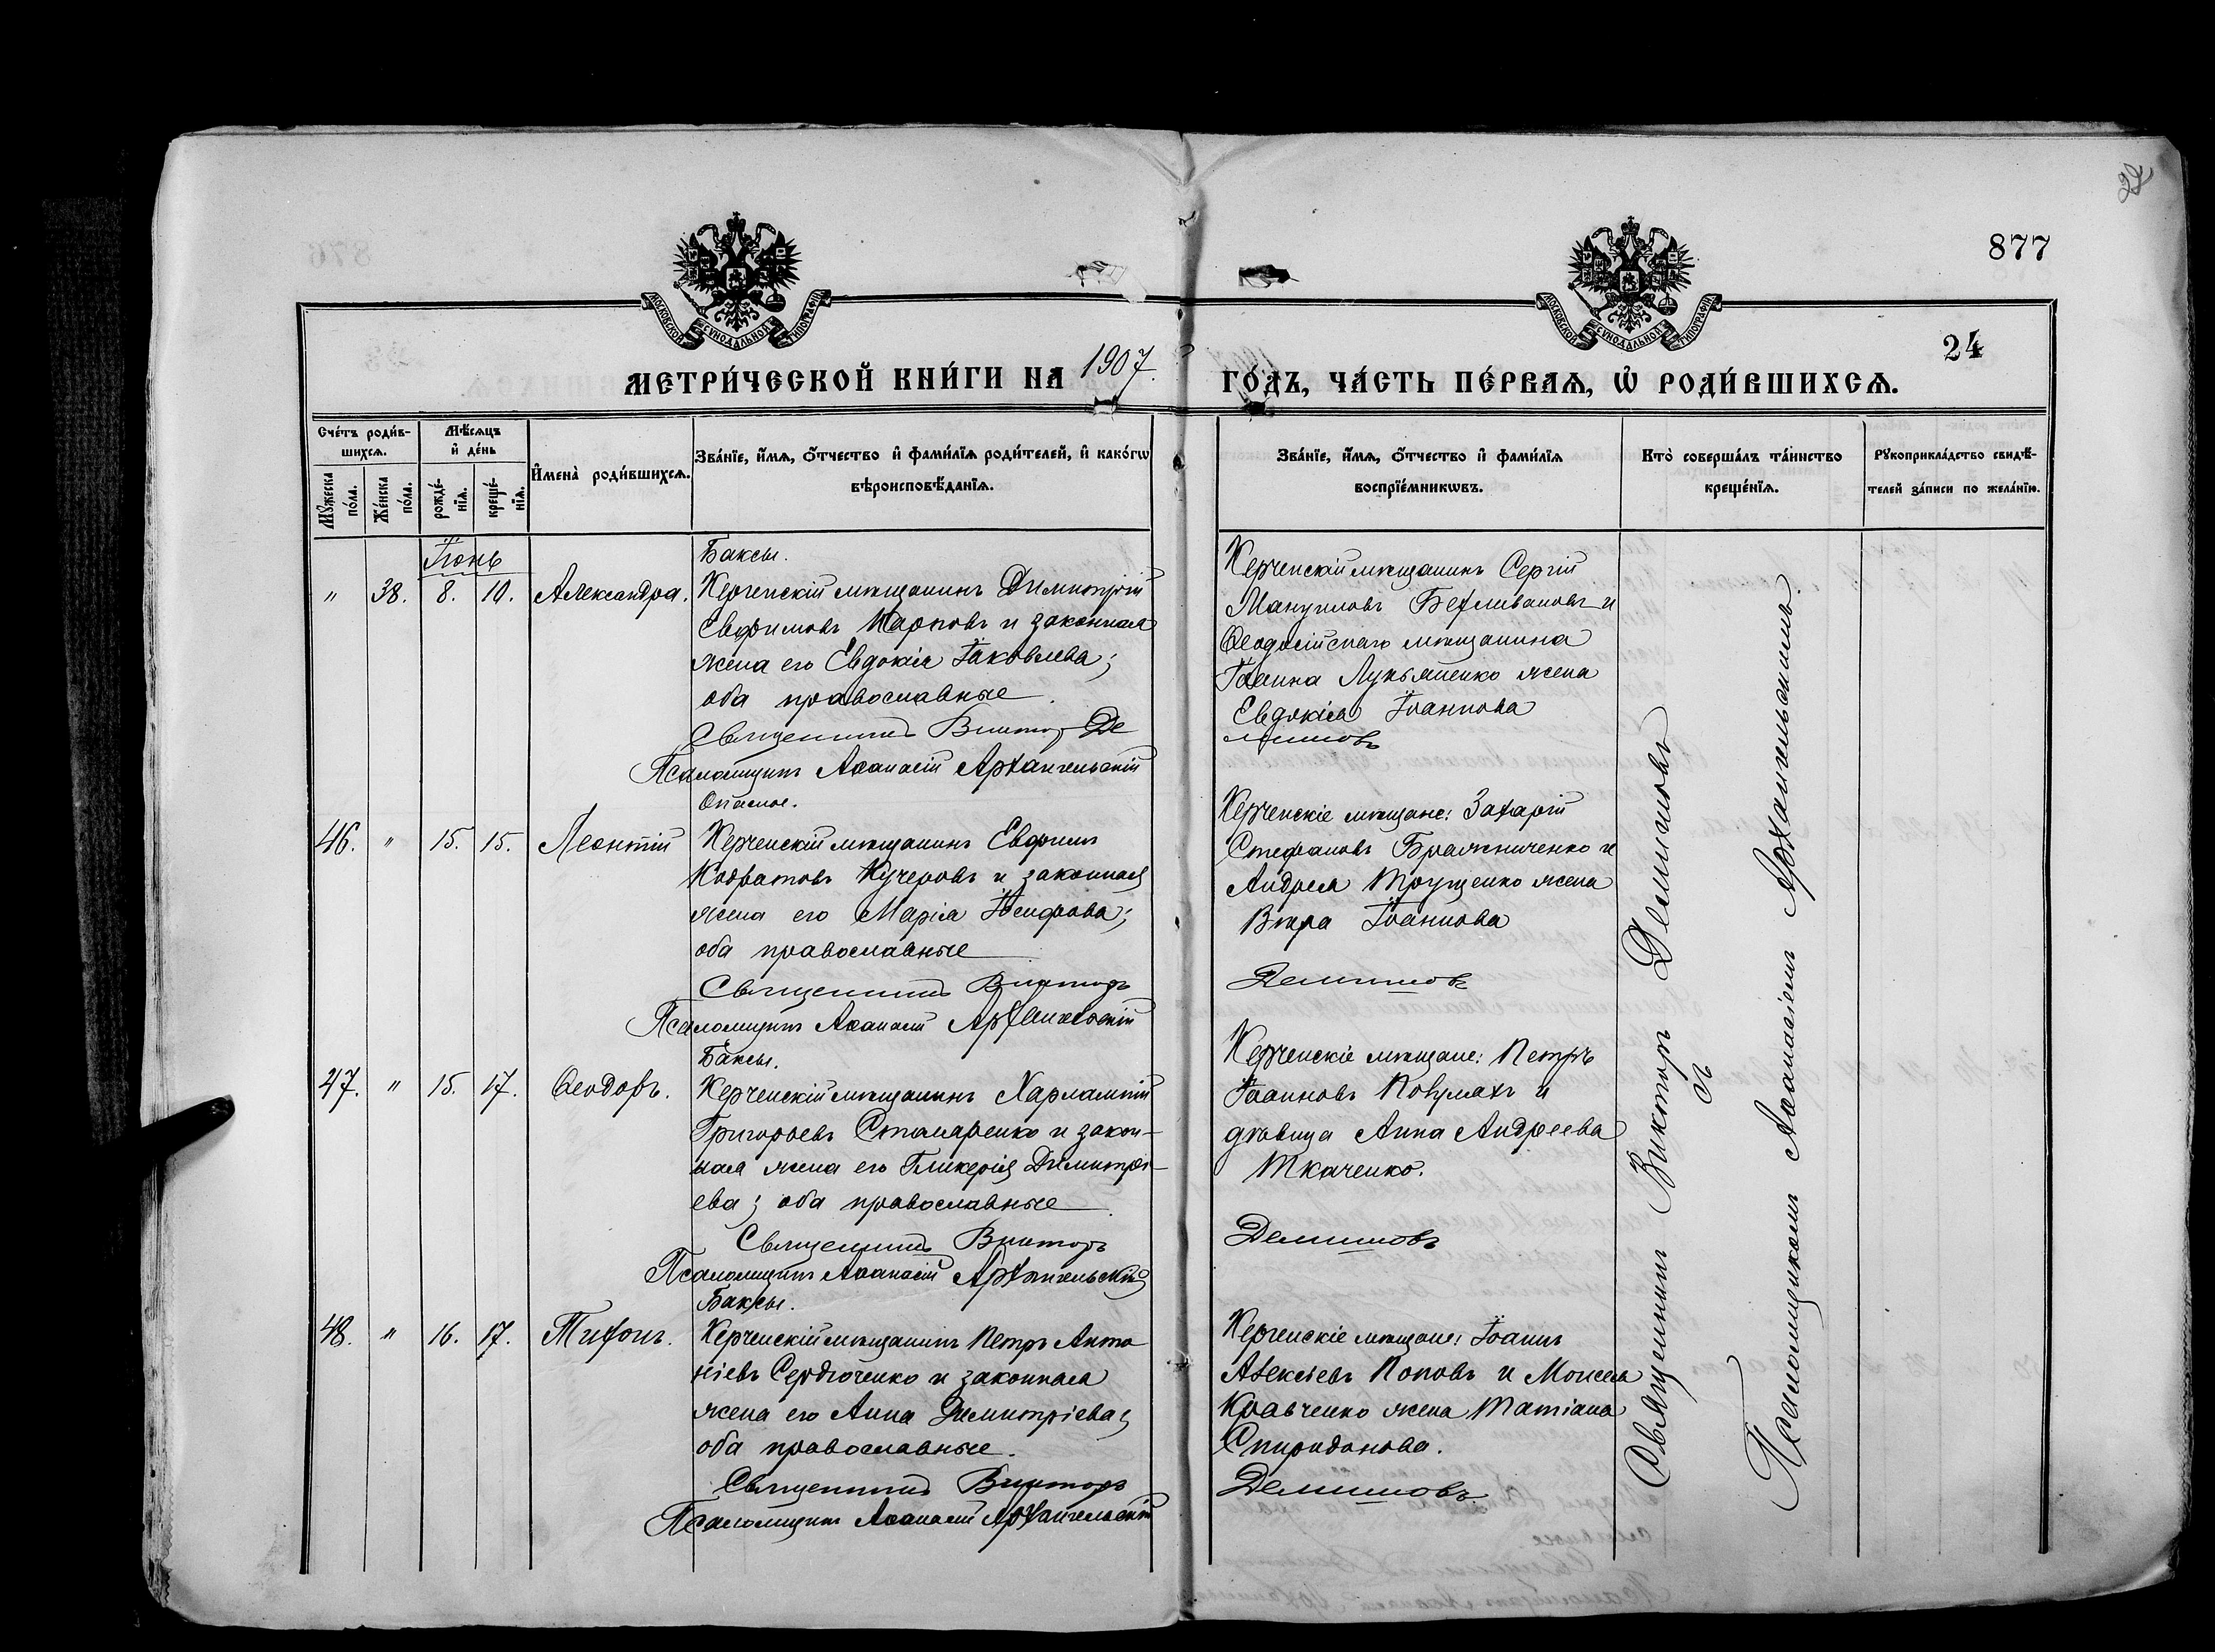 877
24
МОСКОВСКОЙ СУНОДАЛЬНОЙ ТИПОГРАФІИ
МОСКОВСКОЙ СУНОДАЛЬНОЙ ТИПОГРАФІИ
МЕТРИ́ЧЕСКОЙ КНИ́ГИ НА 1907. ГО́ДЪ, ЧА́СТЬ ПЕ́РВАѦ, Ѡ҆ РОДИ́ВШИХСѦ.
Сче́тъ роди́в-
шихсѧ.
Мꙋ́жеска по́ла.
Же́нска по́ла.
Мѣ́сѧцъ
и҆ де́нь
рожде́-
нїѧ.
креще́-
нїѧ.
И҆мена̀ роди́вшихсѧ.
Зва́нїе, и҆́мѧ, ѻ҆́тчество и҆ фами́лїѧ роди́телей, и҆ како́гѡ
вѣроисповѣ́данїѧ.
Зва́нїе, и҆́мѧ, ѻ҆́тчество и҆ фами́лїѧ
воспрїе́мникѡвъ.
Кто̀ соверша́лъ та́инство
креще́нїѧ.
Рꙋкоприкла́дство свидѣ́-
телей за́писи по жела́нїю.
Іюнь
Баксы.
" 38. 8. 10. Александра.
Керченскій мѣщанинъ Димитрій
Евфимовъ Карповъ и законная
жена его Евдокія Іаковлева;
оба православные.
Священникъ Викторъ Де
Псаломщикъ Аѳанасій Архангельскій
Керченскій мѣщанинъ Сергій
Мануиловъ и
Ѳеодосійскаго мѣщанина
Іоанна Лукьяненко жена
Евдокія Іоаннова
мишовъ
Опасное.
46. " 15. 15. Леонтій
Керченскій мѣщанинъ Евфимъ
Кодратовъ Кучеровъ и законная
жена его Марія Іосифова;
оба православные
Священникъ Викторъ
Псаломщикъ Аѳанасій Архангельскій
Керченскіе мѣщане: Захарій
Стефановъ Бражниченко и
Андрея Трущенко жена
Вѣра Іоаннова
Демишовъ
Баксы.
47. " 15. 17. Ѳеодоръ.
Керченскій мѣщанинъ Харлампій
Григорьевъ Столяренко и закон-
ная жена его Гликерія Димитрі-
ева; оба православные.
Священникъ Викторъ
Псаломщикъ Аѳанасій Архангельскій
Керченскіе мѣщане: Петръ
Іоанновъ и
дѣвица Анна Андреева
Ткаченко.
Демишовъ
Баксы.
48. " 16. 17. Тихонъ.
Керченскій мѣщанинъ Петръ Анто
ніевъ Сердюченко и законная
жена его Анна Димитріева;
оба православные.
Священникъ Викторъ
Псаломщикъ Аѳанасій Архангельскій
Керченскіе мѣщане: Іоаннъ
Алексѣевъ Поповъ и Моисея
Кравченко жена Татіана
Спиридонова.
Демишовъ
Священникъ Викторъ Демишовъ
съ
Псаломщикомъ Аѳанасіемъ Архангельскимъ.